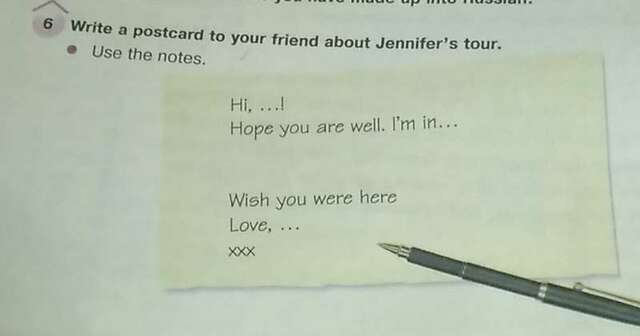 6 Write a postcard to your friend about Jennifer's tour.
• Use the notes.
Hi, ...!
Hope you are well. I'm in...
Wish you were here
Love, ...
xxx